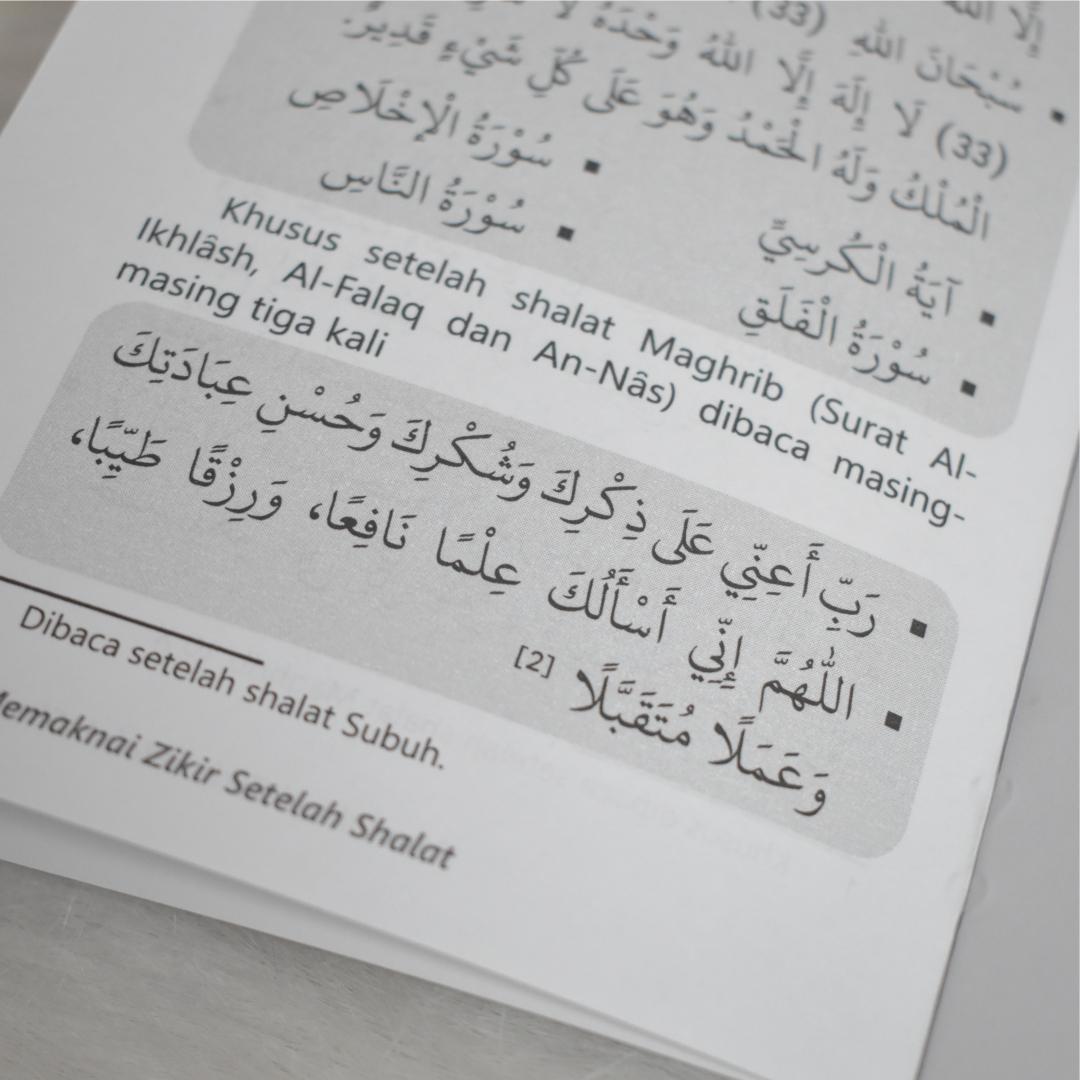 إِلَّا اللهُ
▪ سُبْحَانَ اللهِ (33)
(33) لَا إِلَهَ إِلَّا اللهُ وَحْدَهُ لَا
الْمُلْكُ وَلَهُ الْحَمْدُ وَهُوَ عَلَى كُلِّ شَيْءٍ قَدِيرٌ.
▪ آيَةُ الْكُرْسِيِّ ▪ سُوْرَةُ الْإِخْلَاصِ
▪ سُوْرَةُ الْفَلَقِ ▪ سُوْرَةُ النَّاسِ
Khusus setelah shalat Maghrib (Surat Al-
Ikhlâsh, Al-Falaq dan An-Nâs) dibaca masing-
masing tiga kali
▪ رَبِّ أَعِنِّي عَلَى ذِكْرِكَ وَشُكْرِكَ وَحُسْنِ عِبَادَتِكَ
▪ اللّٰهُمَّ إِنِّي أَسْأَلُكَ عِلْمًا نَافِعًا، وَرِزْقًا طَيِّبًا،
وَعَمَلًا مُتَقَبَّلًا [2]
Dibaca setelah shalat Subuh.
Memaknai Zikir Setelah Shalat